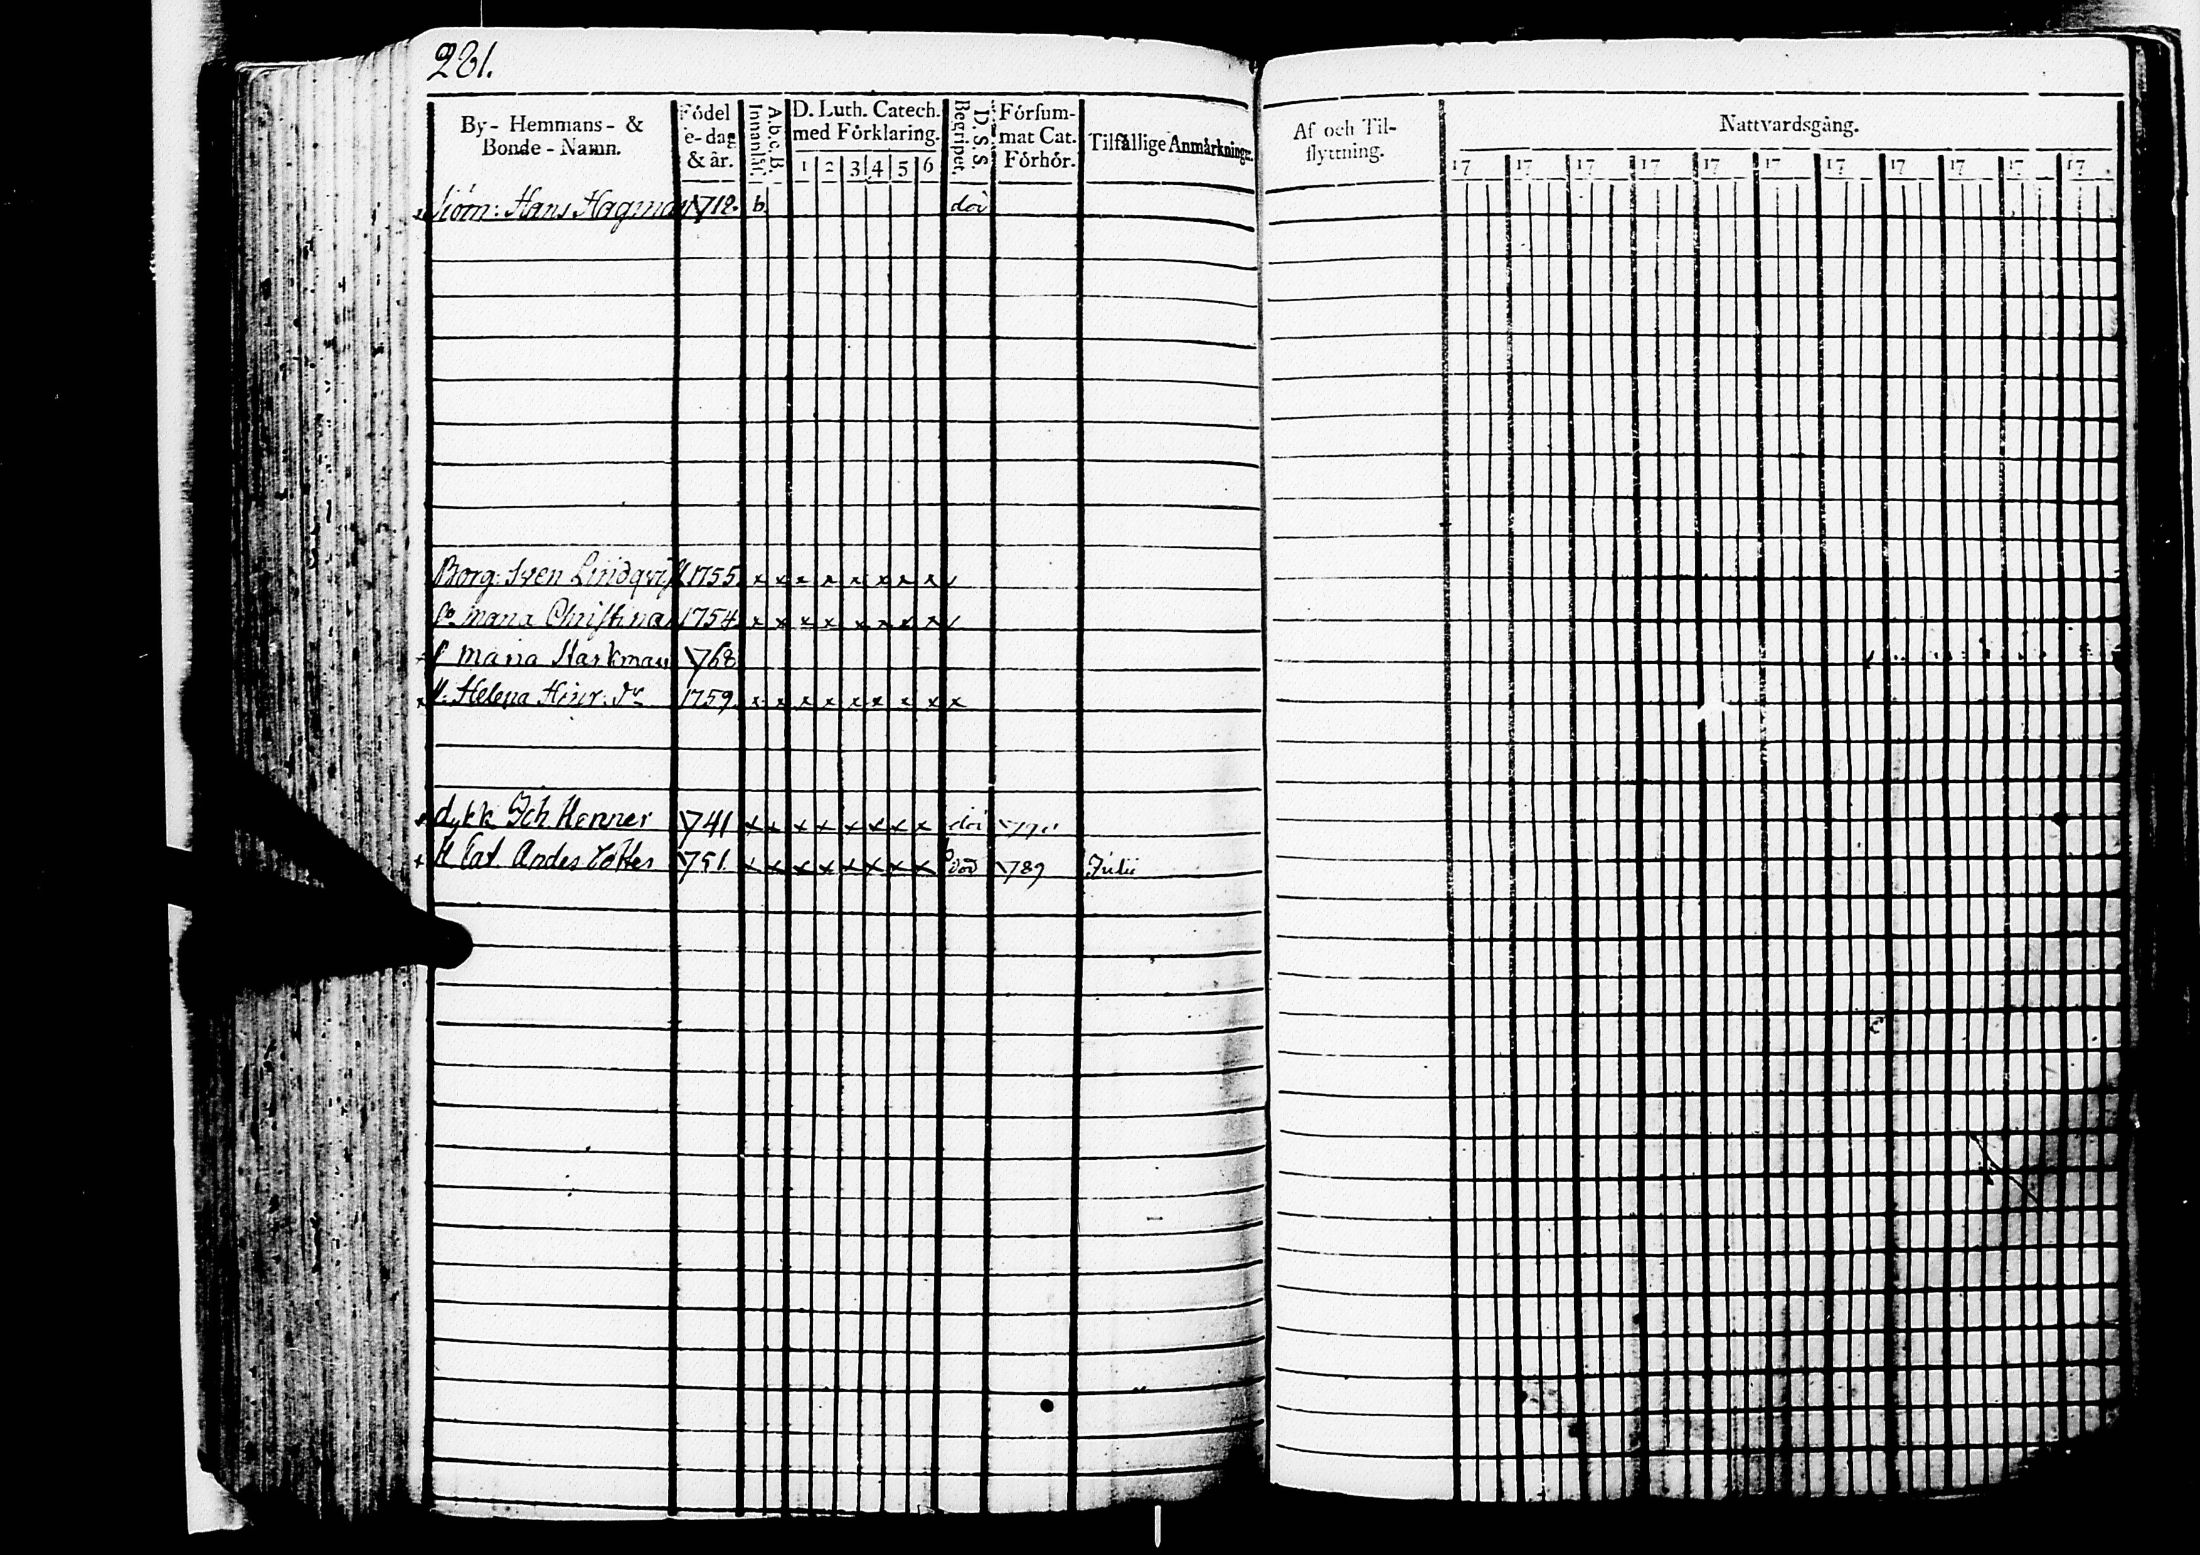 231.
By- Hemmans- & Bonde-Namn. Födelse-dag & år. Innanläs. A.b.c.B. D. Luth. Catech. med Förklaring. 1 2 3 4 5 6 Begriper. D. S. S. Försummat Cat. Förhör. Tillfällige Anmärkningar.
Siöm: Hans Hagman 1712. b död
Borg: Sven Lindqvist 1755 x x x x x x x x
Maria Christina 1754 x x x x x x x x
Maria Starkman 768
H. Helena Hinr: dr 1759 x x x x x x x x x
dykk Joh Henner 741 x x x x x x x x död
H Cat Anders dotter 751. x x x x x x x x död 789 Julii
Af och Tilflyttning. Nattvardsgång.
17 17 17 17 17 17 17 17 17 17 17